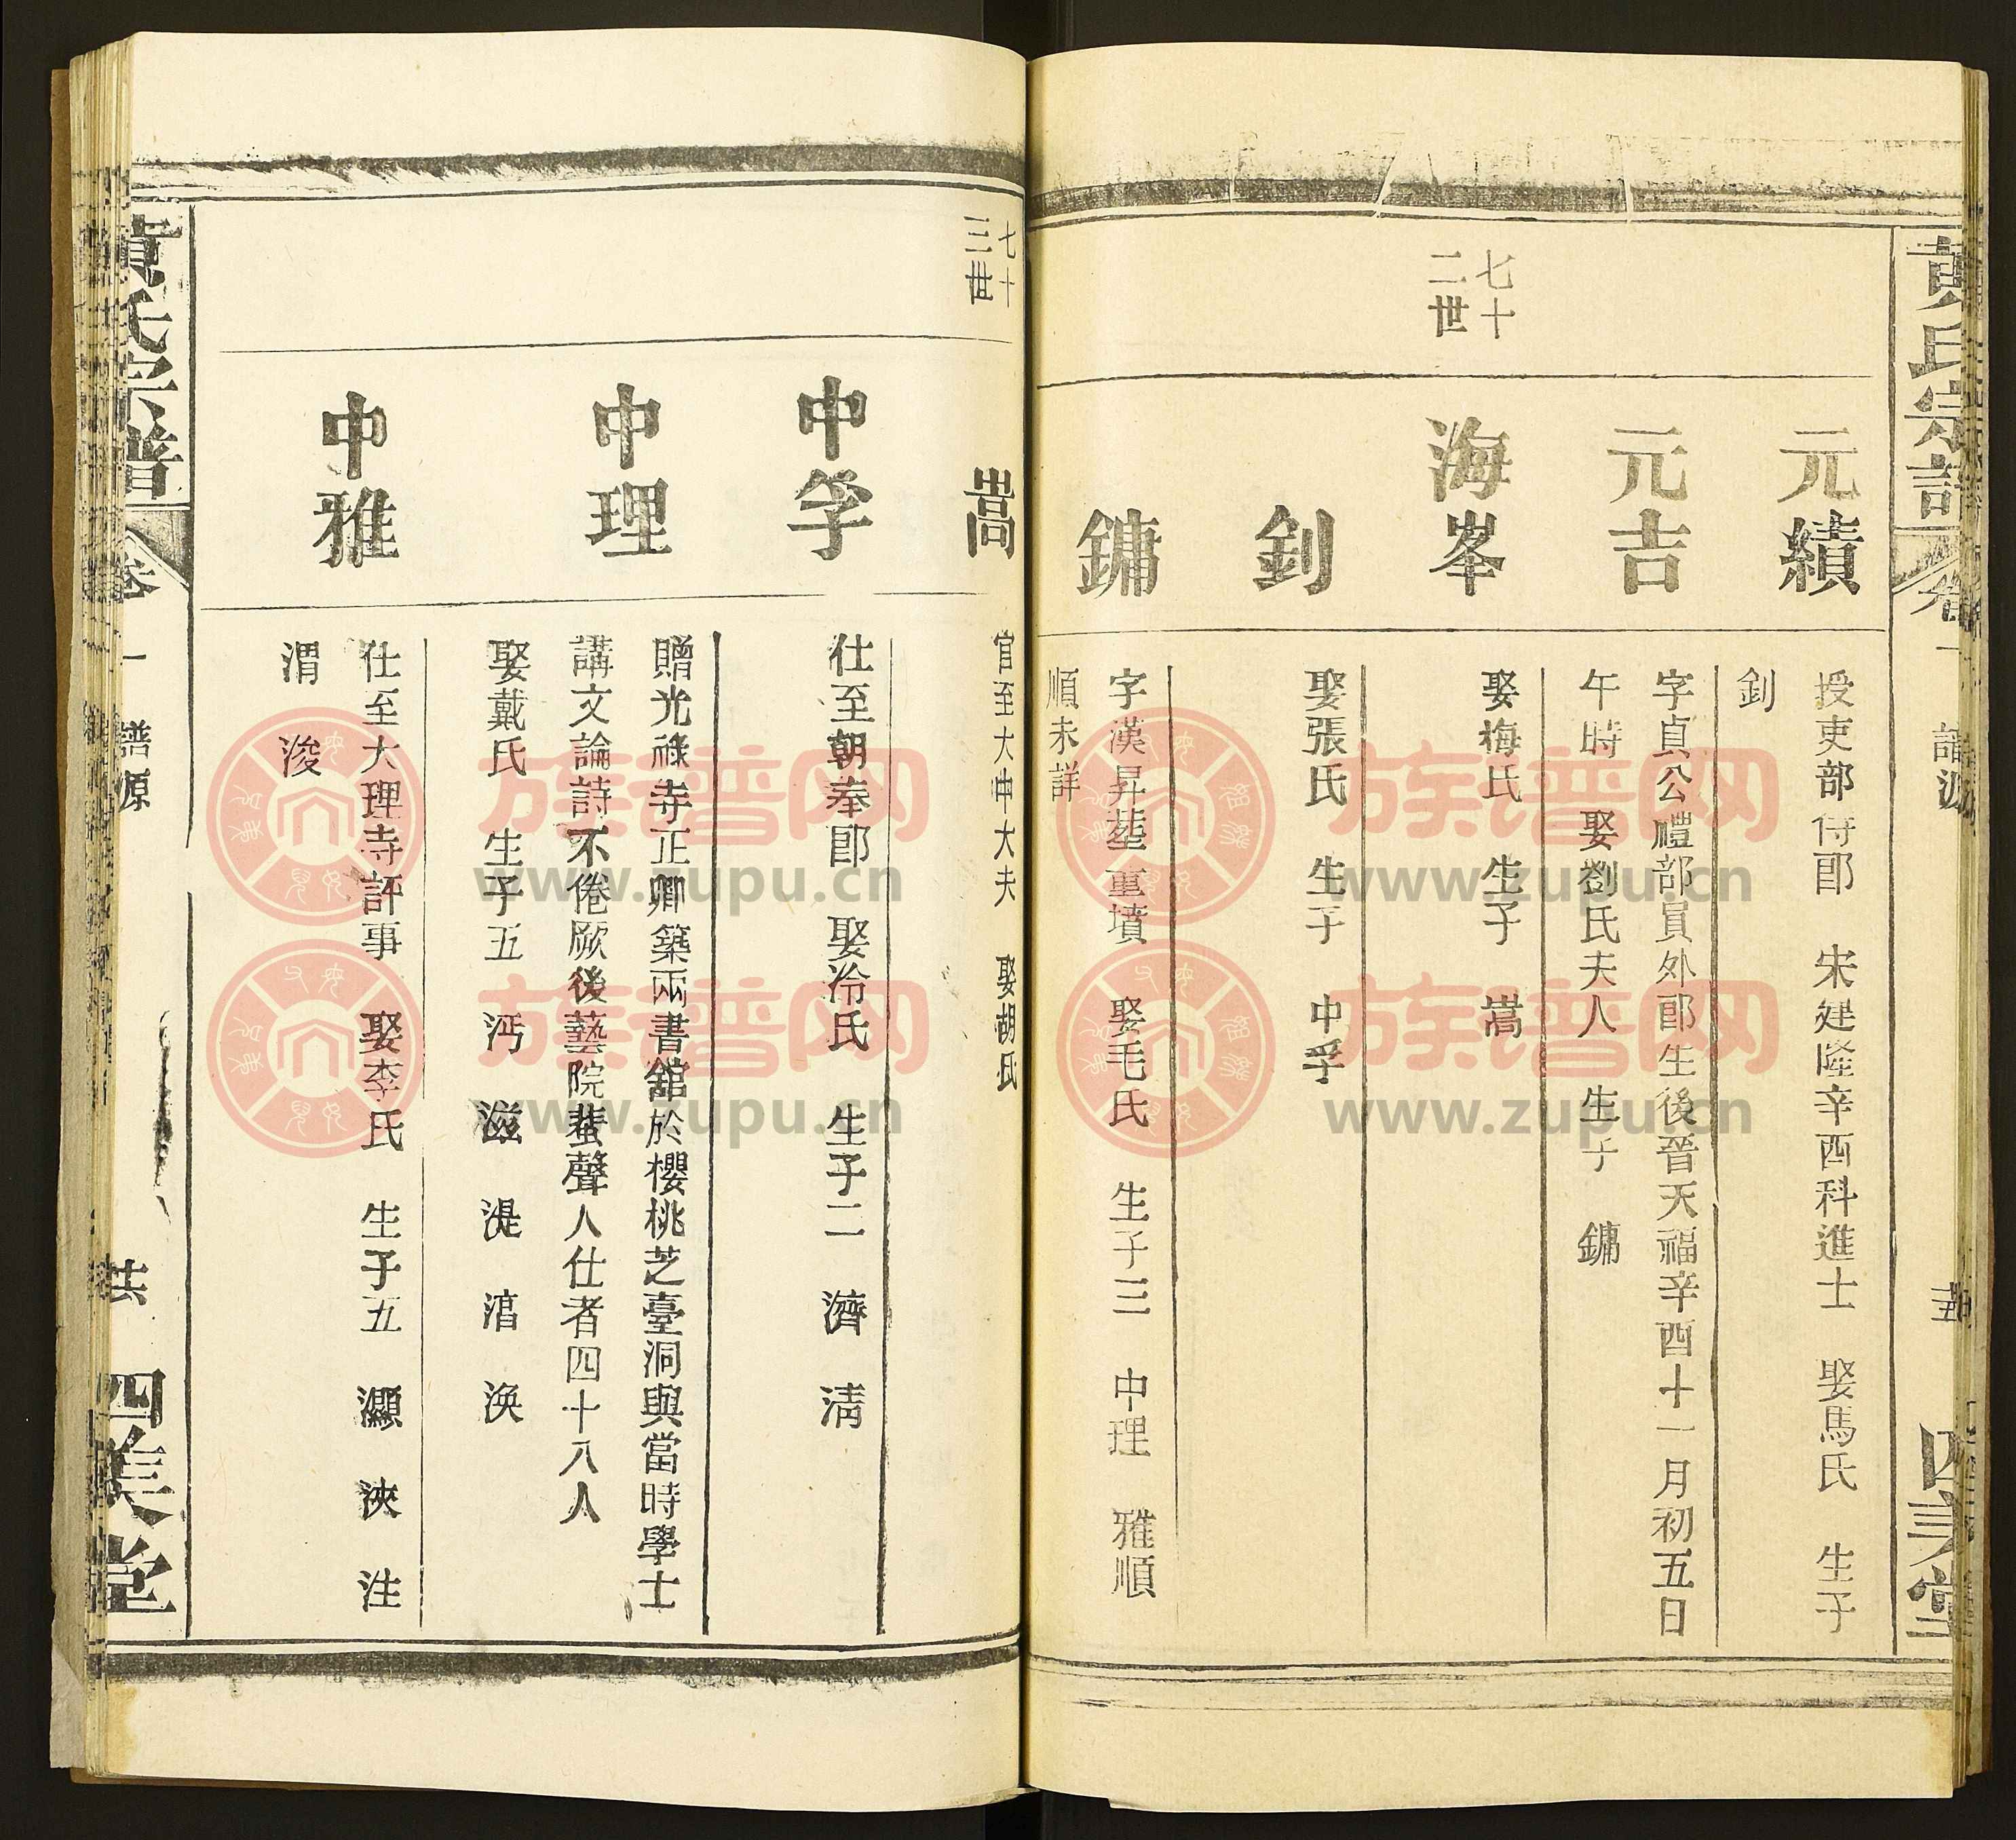 黃氏宗譜
卷一
譜源
四美堂
元績
授吏部侍郎　宋建隆辛酉科進士　娶馬氏　生子
釗
元吉
字貞公禮部員外郎生後晉天福辛酉十一月初五日
午時　娶劉氏夫人　生子　鏞
七十
二世
海峯
娶梅氏　生子　嵩
釗
娶張氏　生子　中孚
鏞
字漢昇塟重墳　娶毛氏　生子三　中理　雅順
順未詳
七十
三世
嵩
官至大中大夫　娶胡氏
中孚
仕至朝奉郎　娶冷氏　生子二　濟　清
中理
贈光祿寺正卿築兩書舘於櫻桃芝臺洞與當時學士
講文論詩不倦厥後藝院蜚聲人仕者四十八人
娶戴氏　生子五　沔　滋　湜　湻　渙
中雅
仕至大理寺評事　娶李氏　生子五　灝　浹　注
渭　浚
黃氏宗譜
卷一
譜源
四美堂
族谱网
www.zupu.cn
族谱网
www.zupu.cn
族谱网
www.zupu.cn
族谱网
www.zupu.cn